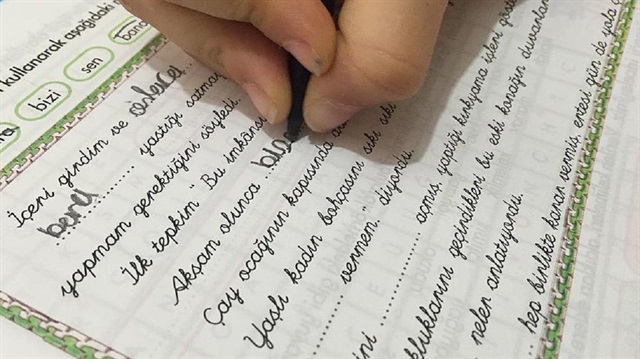 kullanarak aşağıdaki
bizi
sen
bana
İçeri girdim ve onlarca
beni yastığı satmas
yapmam gerektiğini söyledi.
İlk tepkim "Bu imkânsı
Akşam olunca
Çay ocağının kapısında
Yaşlı kadın bohçasını sıkı sıkı
vermem." diyordu.
açmış, yaptığı kırkyama işleri
kluklarını geçindikleri bu eski konağın duvarları
neler anlatıyordu.
hep birlikte karar vermiş, ertesi gün de yola